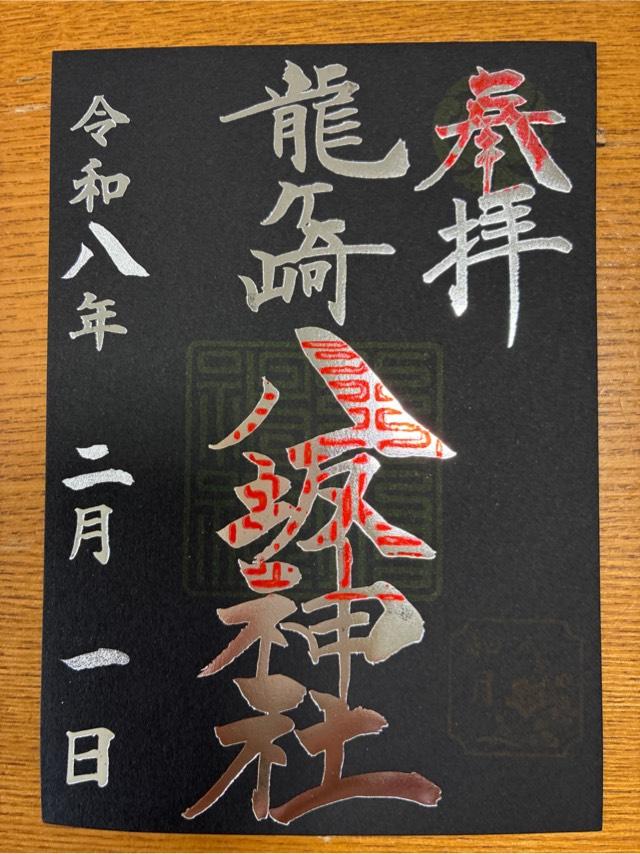 奉拝
龍ヶ崎
八坂神社
令和八年 二月 一日